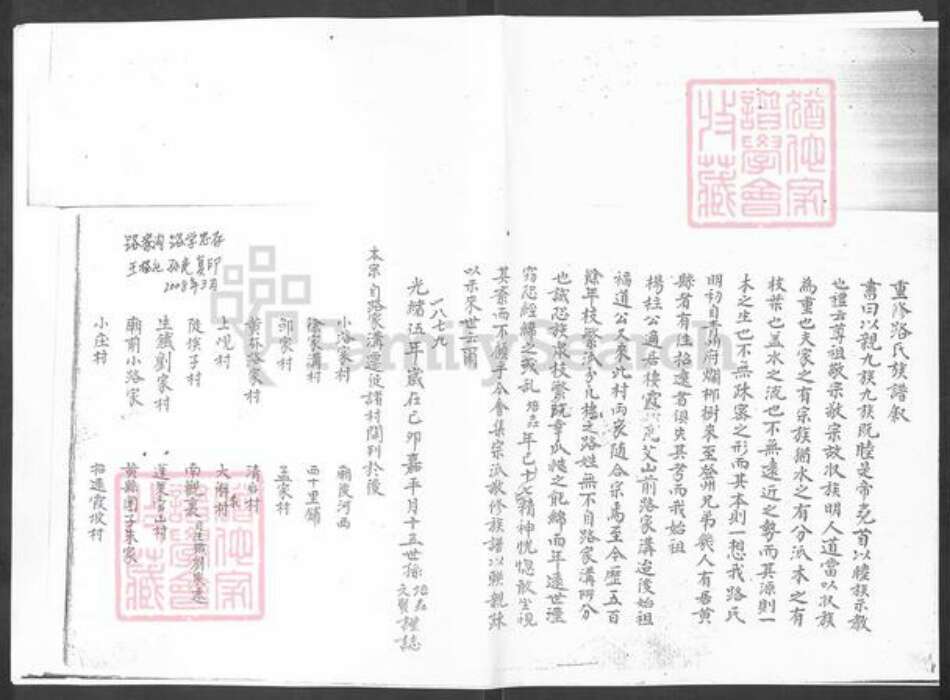 重修路氏族譜叙
書曰以親九族九族既睦是帝堯首以睦族示教
也禮云尊祖敬宗敬宗故收族明人道當以收族
為重也夫家之有宗族猶水之有分派木之有
枝葉也蓋水之流也不無遠近之勢而其源則一
木之生也不無殊寡之形而其本則一想我路氏
明初自青州府爛柳樹來至登州兄弟幾人有居黃
縣者有往招遠者俱失其考而我始祖
楊柱公遍居棲霞艾山前路家溝迨後始祖
福道公又來此村兩家隨合宗焉至今歷五百
餘年枝繁派分凡棲之路姓無不自路家溝所分
也誠恐族衆枝繁既幸瓜瓞之能綿而年遠世湮
窃恐經轉之或乱 年已十七精神恍惚敢坐視
其紊而不顧乎今會集宗派敬修族譜以聯親疎
以示來世云爾
一八七九
光緒伍年歲在己卯嘉平月十五世孫 文賢 謹誌
本宗自路家溝遷徙諸村開列於後
小路家村 廟後河西
徐家溝村 西十里鋪
邰家村 孟家村
黃燕路家村 清香村
上 村 大 東村
陡崖子村 南觀裏 自生鐵劉家遷
生鐵劉家村 蓬萊 山村
廟前小路家 黃縣圈子朱家
小庄村 招遠霞坡村
路家沟 路学忠存
王 孙亮 复印
2008年3月
猶他家譜學會收藏
猶他家譜學會收藏
FamilySearch